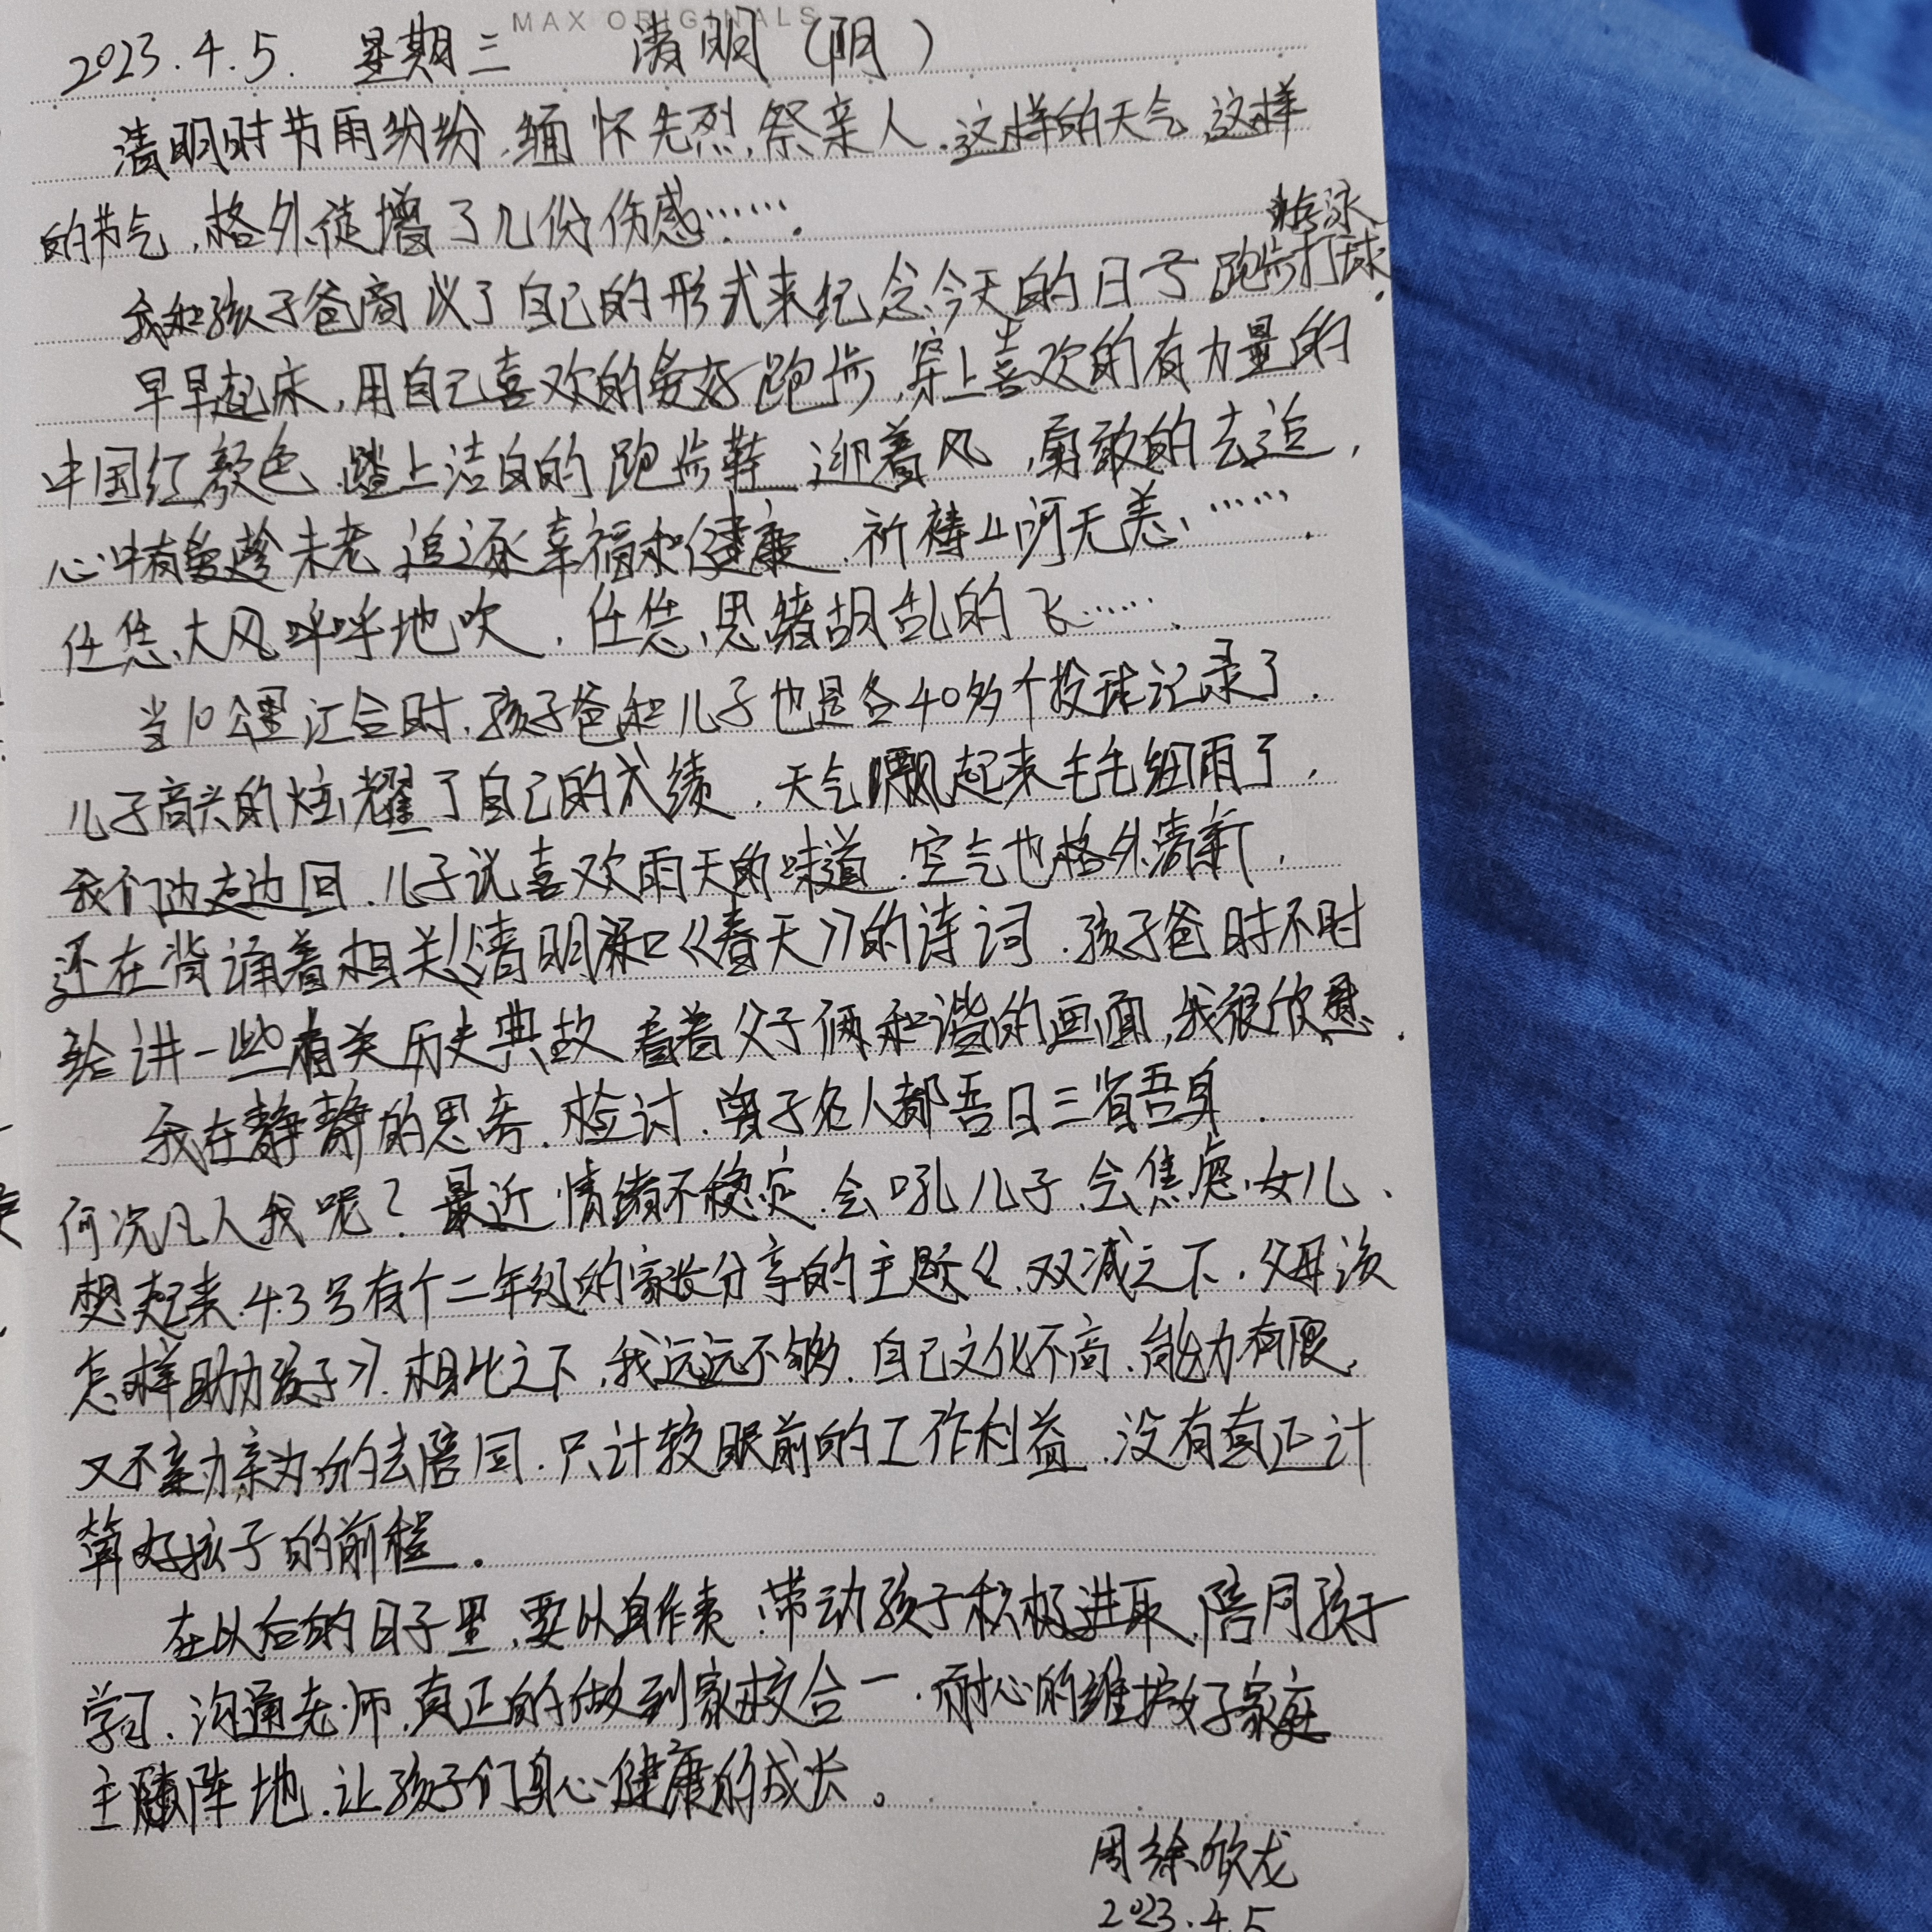 MAX ORIGINALS
2023.4.5. 星期三 清明(阴)
清明时节雨纷纷,缅怀先烈,祭亲人.这样的天气,这样
的节气,格外徒增了几份伤感…….
游泳
我和孩子爸商议了自己的形式来纪念今天的日子.跑步打球.
早早起床,用自己喜欢的爱好跑步,穿上喜欢的有力量的
中国红颜色,踏上洁白的跑步鞋,迎着风,勇敢的去追,
心中有爱趁未老,追逐幸福和健康.祈祷山河无恙.…….
任凭大风呼呼地吹,任凭思绪胡乱的飞…….
当10公里汇合时.孩子爸和儿子也是各40多个投球记录了.
儿子高兴的炫耀了自己的成绩.天气飘起来毛毛细雨了,
我们边走边回.儿子说喜欢雨天的味道.空气也格外清新,
还在背诵着相关《清明》和《春天》的诗词.孩子爸时不时
给讲一些有关历史典故.看着父子俩和谐的画面,我很欣慰.
我在静静的思考.检讨.曾子名人都吾日三省吾身.
何况凡人我呢?最近情绪不稳定.会吼儿子.会焦虑女儿、
想起来43号有个二年级的家长分享的主题《双减之下,父母该
怎样助力孩子》.相比之下,我远远不够.自己文化不高.能力有限.
又不亲力亲为的去陪同.只计较眼前的工作利益.没有真正计
算好孩子的前程.
在以后的日子里,要以身作责.带动孩子积极进取.陪同孩子
学习.沟通老师.真正的做到家校合一.耐心的维护好家庭
主阵地.让孩子们身心健康的成长。
周徐欣龙
2023.4.5